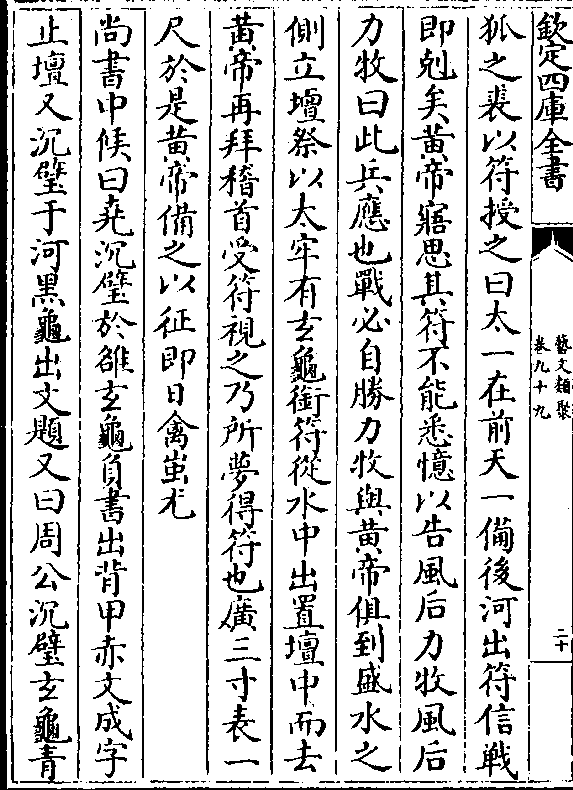 欽定四庫全書
藝文類聚
卷九十九
二十
狐之裘以符授之曰太一在前天一備後河出符信戰
即剋矣黃帝寤思其符不能悉憶以告風后力牧風后
力牧曰此兵應也戰必自勝力牧與黃帝俱到盛水之
側立壇祭以太牢有玄龜銜符從水中出置壇中而去
黃帝再拜稽首受符視之乃所夢得符也廣三寸表一
尺於是黃帝備之以征即日禽蚩尤
尚書中候曰堯沉璧於雒玄龜負書出背甲赤文成字
止壇又沉璧于河黑龜出文題又曰周公沉璧玄龜青